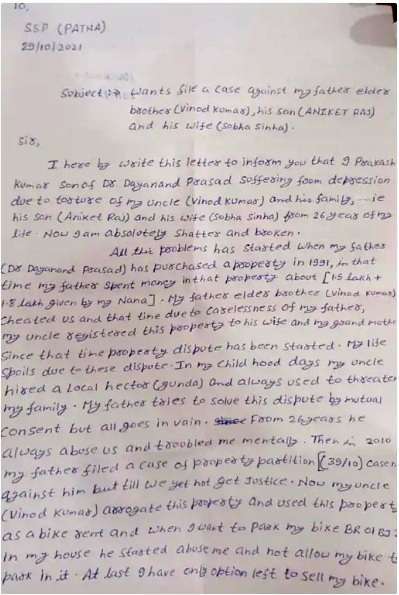 To,
SSP (PATNA)
29/10/2021
Subject:- Wants file a case against my father elder
brother (Vinod Kumar), his son (ANIKET RAJ)
and his wife (Sobha Sinha).
Sir,
I here by write this letter to inform you that I Prakash
Kumar son of Dr Dayanand Prasad suffering from depression
due to torture of my uncle (Vinod Kumar) and his family, ie
his son (Aniket Raj) and his wife (Sobha Sinha) from 26 year of my
life. Now I am absolutely shatter and broken.
All this problems has started when my father
(Dr Dayanand Prasad) has purchased a property in 1991, in that
time my father spent money in that property about [1.5 Lakh +
1.8 Lakh given by my Nana]. My father elder brother (Vinod Kumar)
cheated us and that time due to carelessness of my father,
my uncle registered this property to his wife and my grand mothe
Since that time property dispute has been started. My life
spoils due to these dispute. In my child hood days my uncle
hired a Local hector (gunda) and always used to threaten
my family. My father tries to solve this dispute by mutual
consent but all goes in vain. From 26 years he
always abuse us and troubled me mentally. Then in 2010
my father filed a case of property partition [(39/10) case n
against him but till we yet not get Justice. Now my uncle
(Vinod Kumar) arrogate this property and used this propert
as a bike rent and when I want to park my bike BR01B
In my house he started abuse me and not allow my bike t
park in it. At last I have only option left to sell my bike.